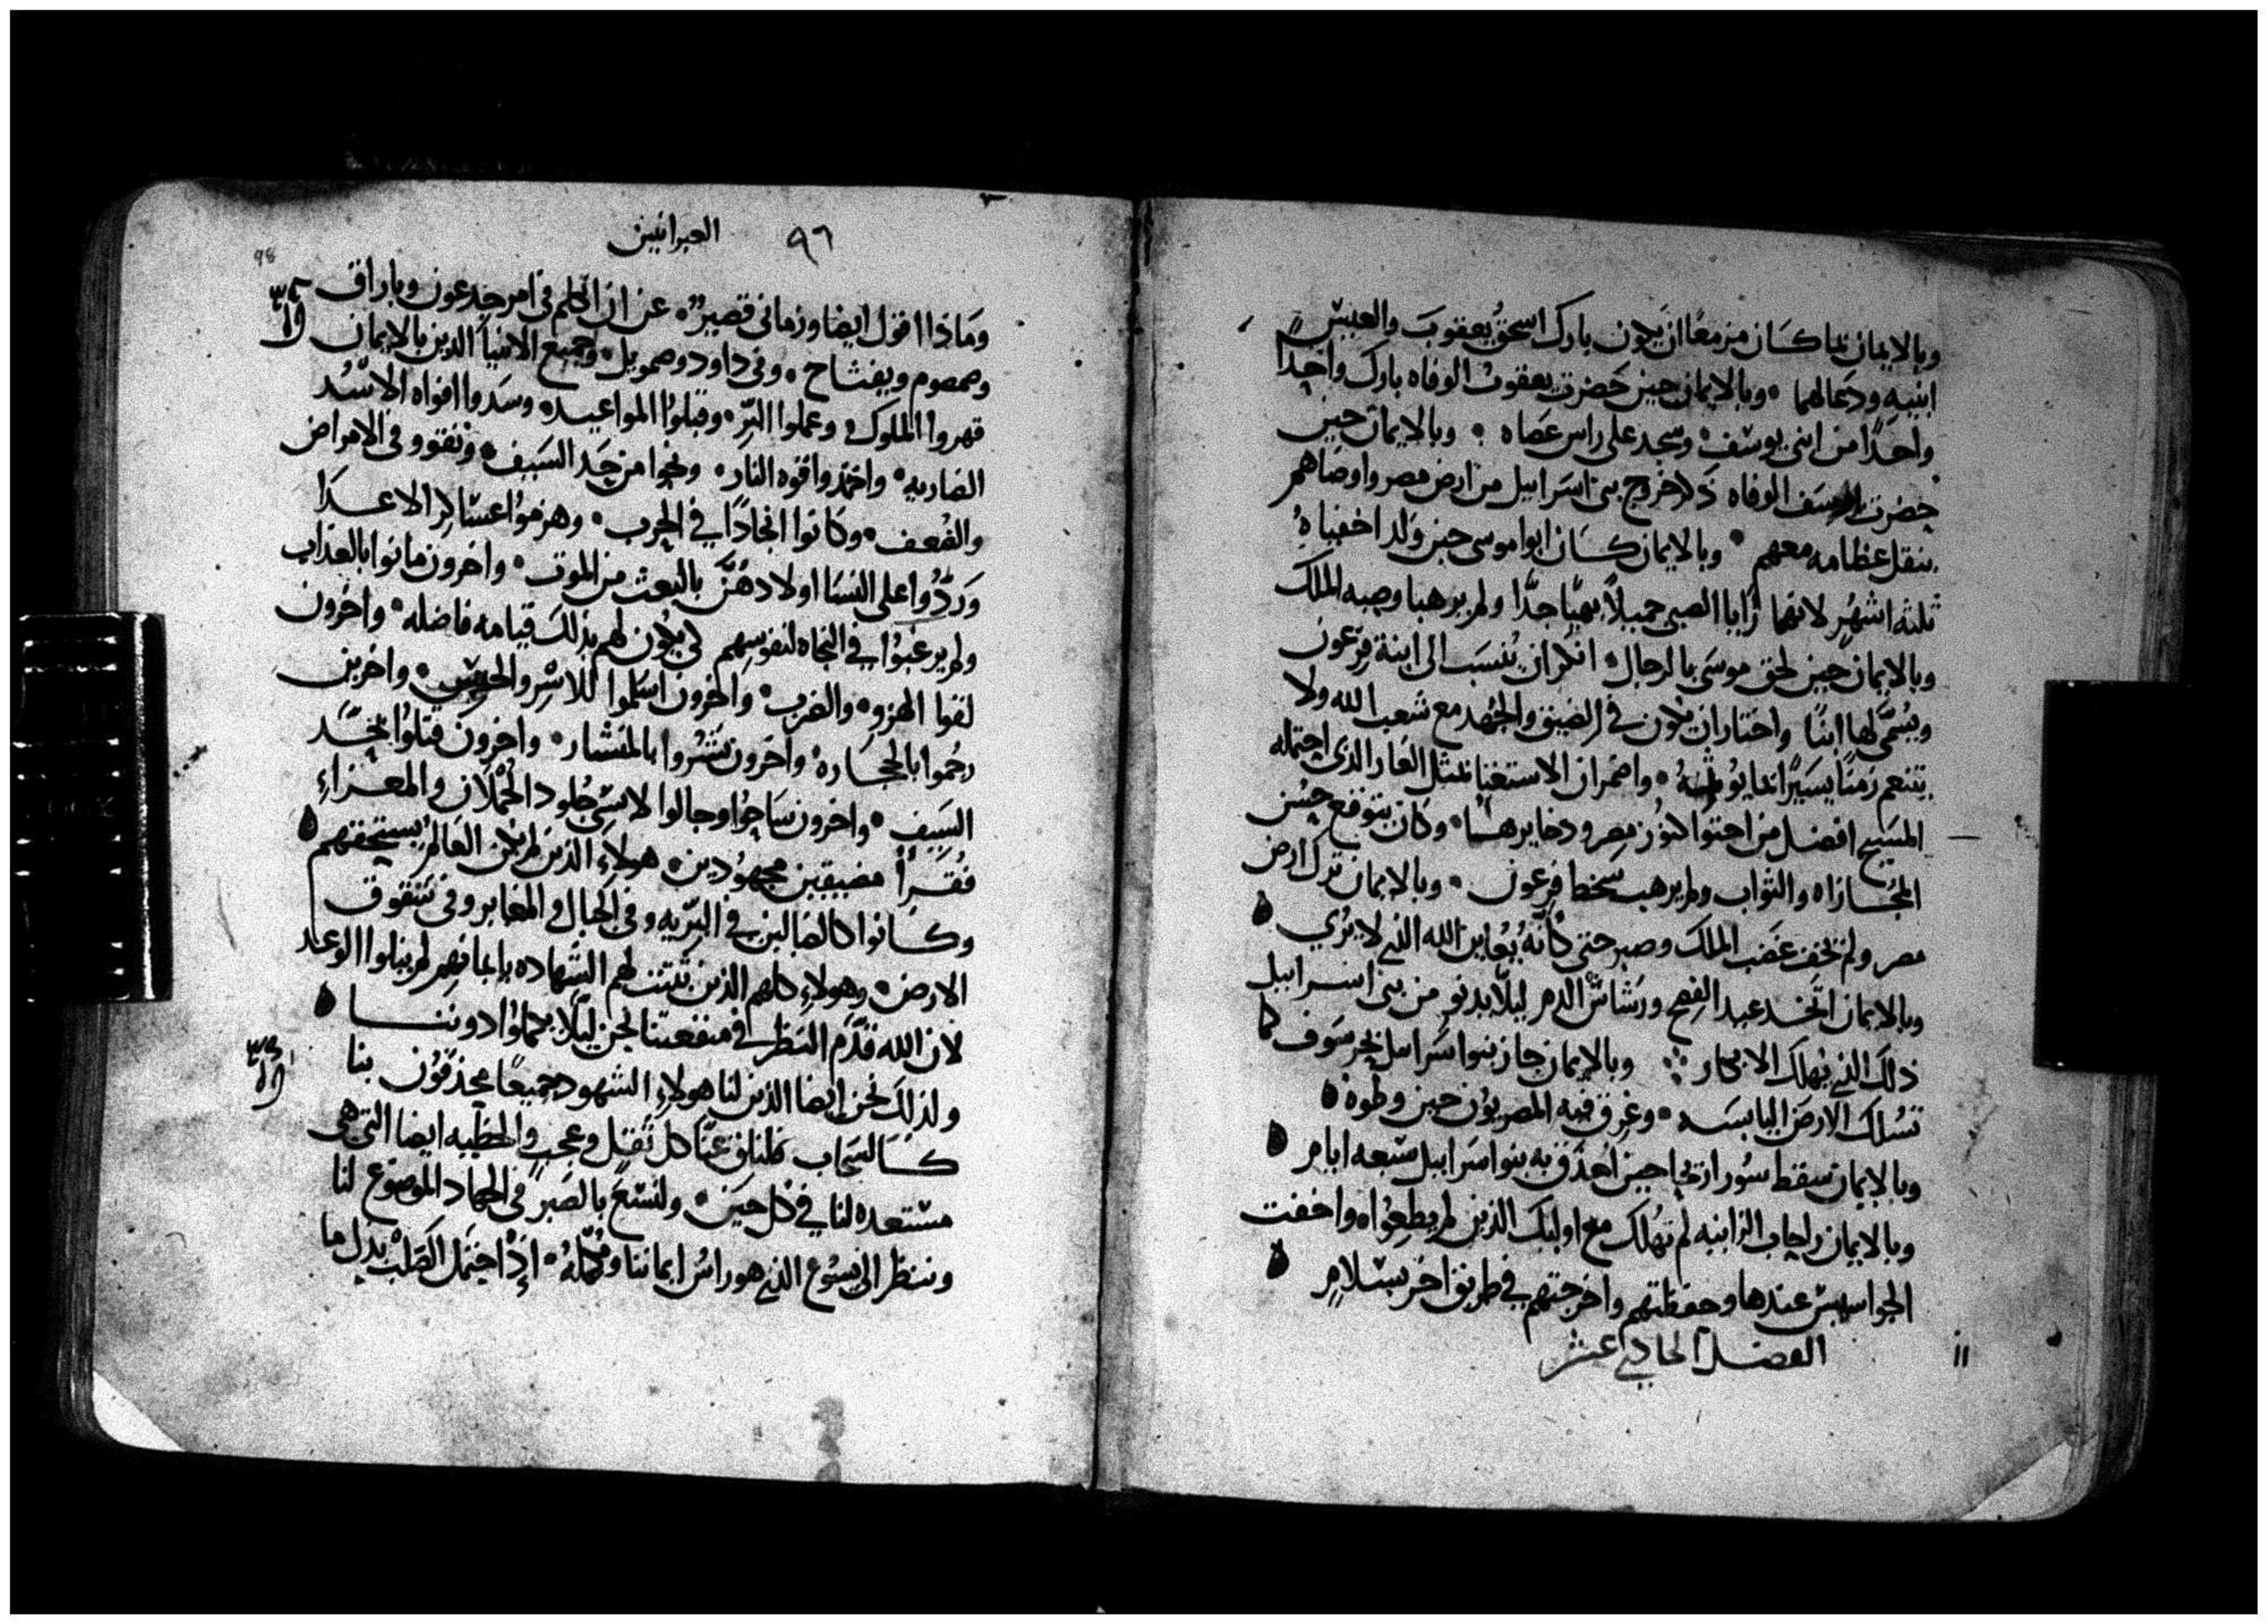 وبالايمان بما كان مزمعًا ان يكون بارك اسحق يعقوبَ والعيس
ابنيهِ ودعا لهما • وبالايمان حين حَضَرت يعقوبُ الوفاه بارك واحِدًا
واحدًا من ابنى يوسف • وسجد على راس عصاه • وبالايمان حين
حضرت يوسف الوفاه ذكر خروج بنى اسرائيل من ارض مصر واوصاهم
بنقل عظامه معهم • وبالايمان كان ابوا موسى حين وُلد اخفياهُ
ثلثه اشهرٍ لانهما رايا الصبى جميلاً بهيًا جدًّا ولم يرهبا وصيه الملك
وبالايمان حين لحق موسَى بالرجال • انكر ان يُنسَب الى ابنة فِرعون
ويُسَمَّى لها ابنًا واختار ان يكون فى الضيق والجُهد مع شعب الله ولا
يتنعم زمنًا يسيرًا انما يُوثمهُ • واضمر ان الاستغنا بمثل العار الذى احتمله
المسَيح افضل من احتوا كنوُز مِصر وذخايرها • وكان يتوقع حُسْن
المُجازاه والثواب ولم يرهب سخط فِرعون • وبالايمان ترك ارض
مصر ولم يخف غضَب الملك وصبر حتى كأنّهُ يُعاين الله الذى لا يُرَي •
وبالايمان اتّخذ عيد الفِصح ورَشاشَ الدم ليلّا يدنو من بنى اسرائيل
ذلك الذى يُهلك الابكار ∴ وبالايمان جاز بنوا اسرايل بحر سَوف كما
تسُلك الارضَ اليابسَه • وغرق فيه المصريوُن حين وطوه •
وبالايمان سقط سُور اريحا حين احدَق به بنوا اسرايل سَبعه ايام •
وبالايمان راحاب الزانيه لم تهُلك مع اوليك الذين لم يطيعُواه واخفت
الجواسيسَ عندها وحفظتهم واخرجتهم فى طريق اخر بسَلامٍ •
الفصل الحادي عشر
١١
٩٦ العبرانيين
98
ومَاذا اقول ايضا وزمانى قصيرٌ • عن ان اتكلم فى امر جدعون وباراق
وصمصوم ويفتاح • وفى داود وصمويل • وجميع الانبيا الذين بالايمان
قهروا الملوك • وعملوا البِرّ • وقبلوُا المواعيد • وسَدوا افواه الاسُد
الضاريه • واخمدوا قوه النار • ونجوا من حَد السَيف • وتقووا فى الامراض
والضُعف • وكانوا انجادًا فى الحرب • وهزموُا عسَاكر الاعدا
وَردُّوا على النسَا اولادهُنَّ بالبعث من الموت • واخرون ماتوا بالعذاب
ولم يرغبوُا فى النجاه لنفوسِهم لكى يكُون لهم بذلك قيامه فاضله • واخرون
لقوا الهزو • والضرب • واخرون اسَلموا للاسْرِ والحبسِ • واخرين
رجُموا بالحجَاره • واخرون نُشروا بالمنشار • واخرونَ قتلوُا بحَدِّ
السَيفِ • واخرون سَاحوُا وجالوا لابسى جُلود الحُملان والمعزاءِ
فُقرأ مضيقين مجهوُدين • هولاءِ الذين لم يكن العَالمُ يستحقهم •
وكانوا كالضالين فى البَرّيه وفى الجبال والمغاير وفى شقوق
الارض • وهولاءِ كلهم الذين ثبتت لهم الشهاده بايمانهم لم ينالوا الوعد
لان الله قدَّمَ النظر فى منفعتنا نحن ليَلا يكملوُا دوننا •
ولذلك نحن ايضا الذين لنا هولاءِ الشهود جميعًا محدقوُن بنا
كالسَحَاب فلنلق عنّا كل ثِقل وعجبٍ والخطيه ايضا التى هى
مسَتعده لنا فى كُل حِين • ولنسَعَ بالصَبر فى الجهاد الموضوُع لنا
وننظر الى يسوُع الذى هو راسُ ايماننا ومُكمّلهُ • اذ احتمل الصَلبْ بدل ما